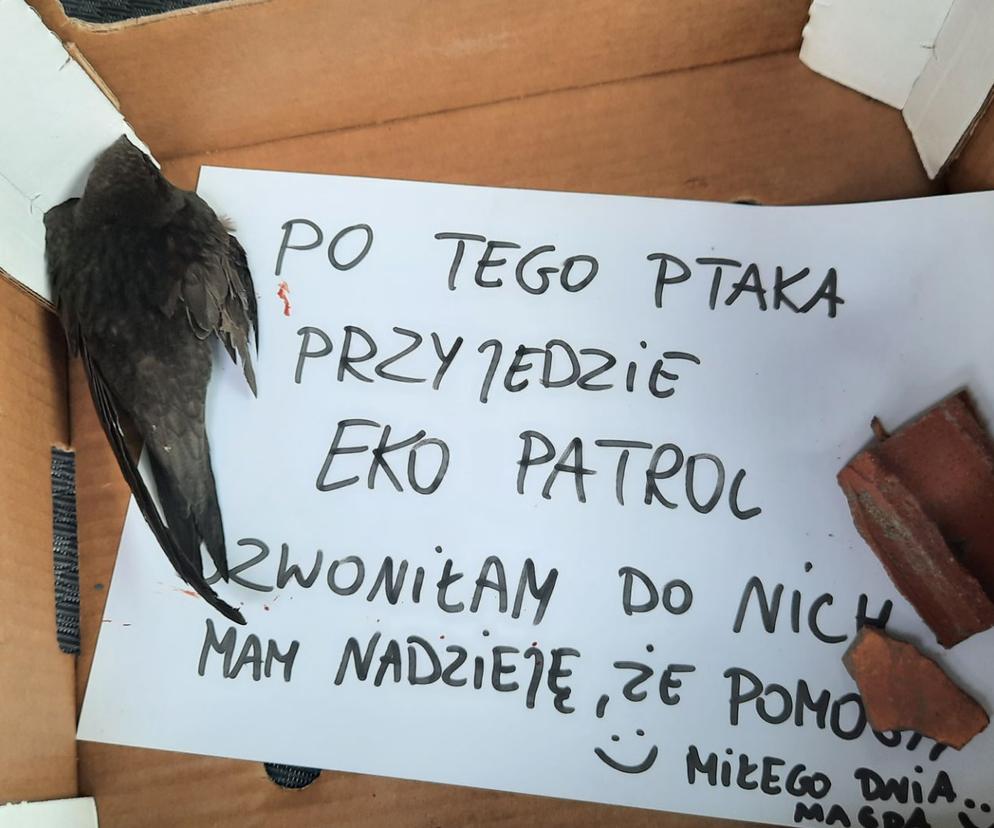 PO TEGO PTAKA
PRZYJEDZIE
EKO PATROL
DZWONIŁAM DO NICH
MAM NADZIEJĘ, ŻE POMOGĄ
:) MIŁEGO DNIA..
MAGDA :)